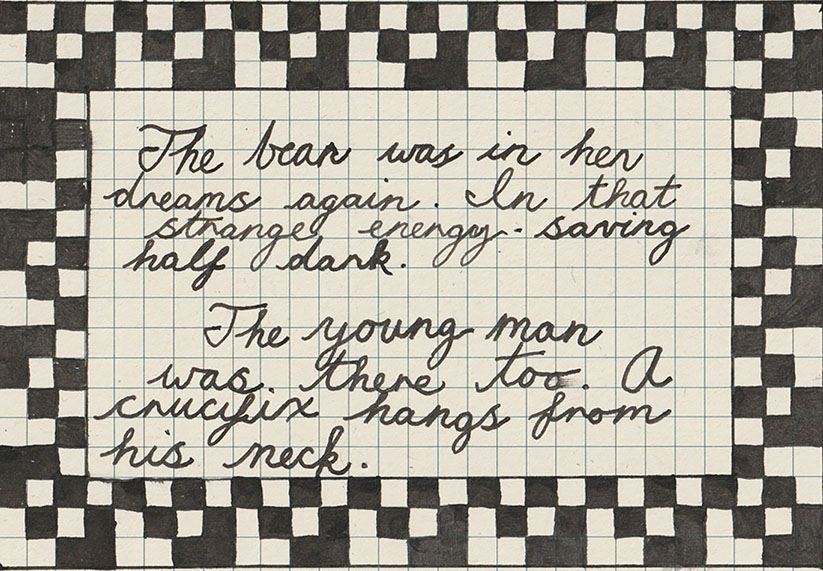 The bear was in her
dreams again. In that
strange energy-saving
half dark.
The young man
was. there too. A
crucifix hangs from
his neck.